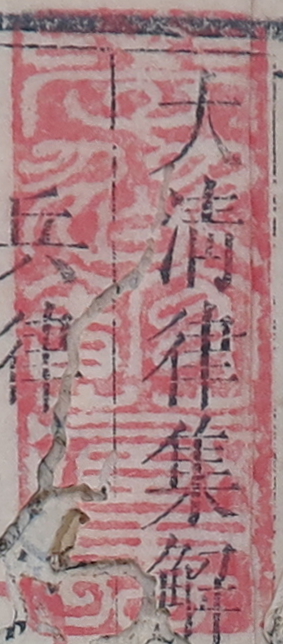 大清律集解
兵律